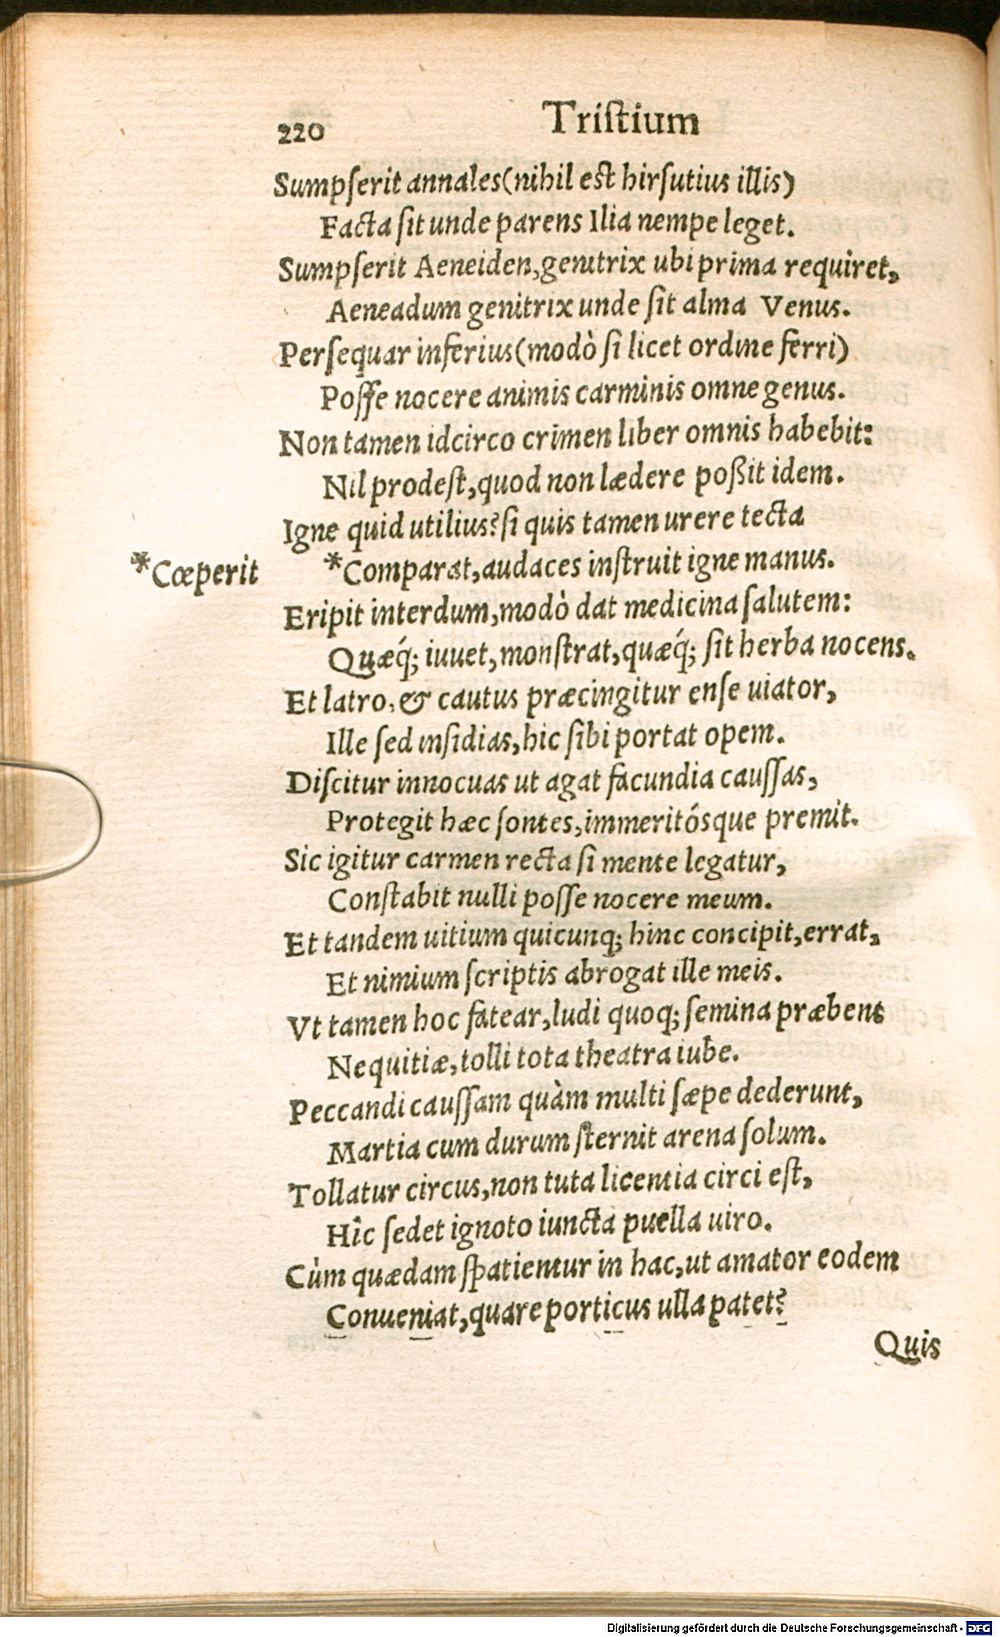 220 Tristium
Sumpserit annales (nihil est hirsutius illis)
Facta sit unde parens Ilia nempe leget.
Sumpserit Aeneiden, genitrix ubi prima requiret,
Aeneadum genitrix unde sit alma Venus.
Persequar inferius (modò si licet ordine ferri)
Posse nocere animis carminis omne genus.
Non tamen idcirco crimen liber omnis habebit:
Nil prodest, quod non lædere poßit idem.
Igne quid utilius? si quis tamen urere tecta
*Cœperit *Comparat, audaces instruit igne manus.
Eripit interdum, modò dat medicina salutem:
Quæq́; iuuet, monstrat, quæq́; sit herba nocens.
Et latro, & cautus præcingitur ense uiator,
Ille sed insidias, hic sibi portat opem.
Discitur innocuas ut agat facundia caussas,
Protegit hæc sontes, immeritósque premit.
Sic igitur carmen recta si mente legatur,
Constabit nulli posse nocere meum.
Et tandem uitium quicunq; hinc concipit, errat,
Et nimium scriptis abrogat ille meis.
Vt tamen hoc fatear, ludi quoq; semina præbent
Nequitiæ, tolli tota theatra iube.
Peccandi caussam quàm multi sæpe dederunt,
Martia cum durum sternit arena solum.
Tollatur circus, non tuta licentia circi est,
Hîc sedet ignoto iuncta puella uiro.
Cùm quædam spatientur in hac, ut amator eodem
Conueniat, quare porticus ulla patet?
Quis
Digitalisierung gefördert durch die Deutsche Forschungsgemeinschaft - DFG